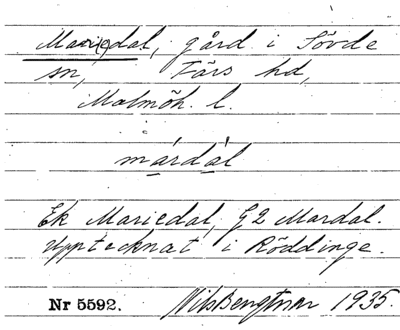 Mari(e)dal, gård i Sövde
sn, Färs hd,
Malmöh. l.
márdál
Ek Mariedal, G2 Mardal.
Upptecknat i Röddinge.
Nr 5592. Nils Bengtsson 1935.